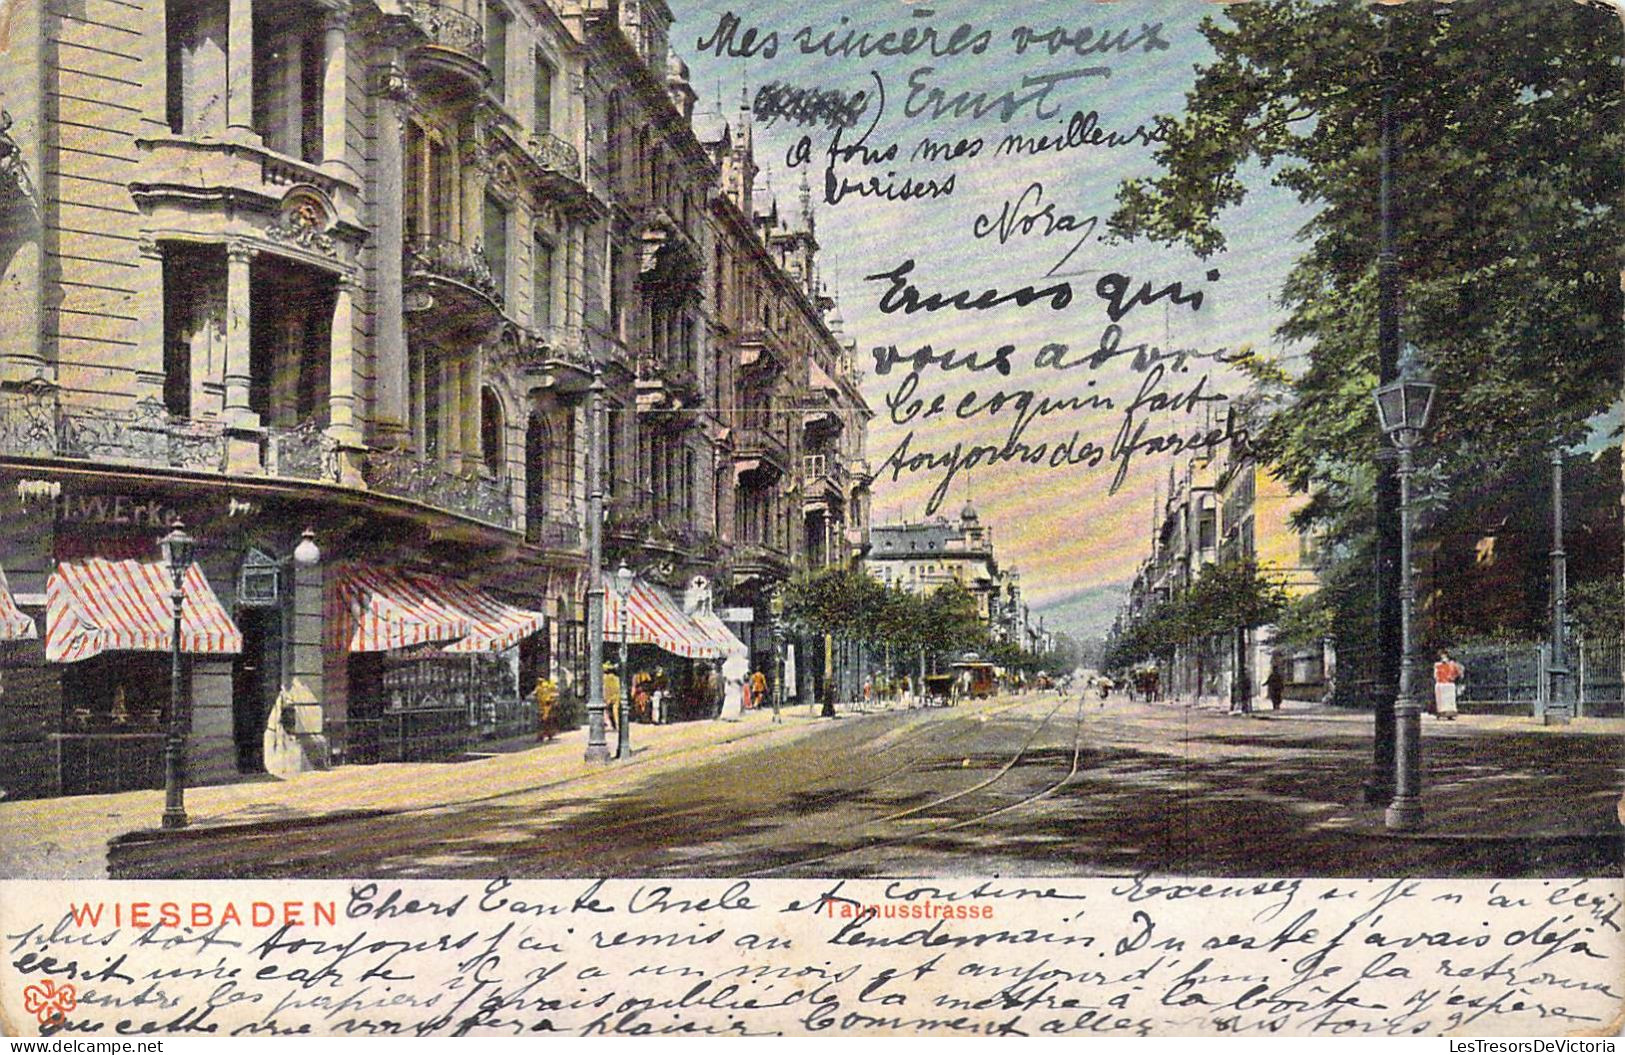 Mes sincères voeux
Ernst
A tous mes meilleurs
baisers
Nora
Ernest qui
vous adore
Ce coquin fait
toujours des farces
H.W.Erke
WIESBADEN Taunusstrasse
Chers Tante Oncle et cousine Excusez si je n'ai écrit
plus tôt toujours j'ai remis au lendemain. Du reste j'avais déjà
écrit une carte il y a un mois et aujourd'hui je la retrouve
entre les papiers j'avais oublié de la mettre à la boîte j'espère
que cette vue vous fera plaisir. Comment allez vous tous?
LesTresorsDeVictoria